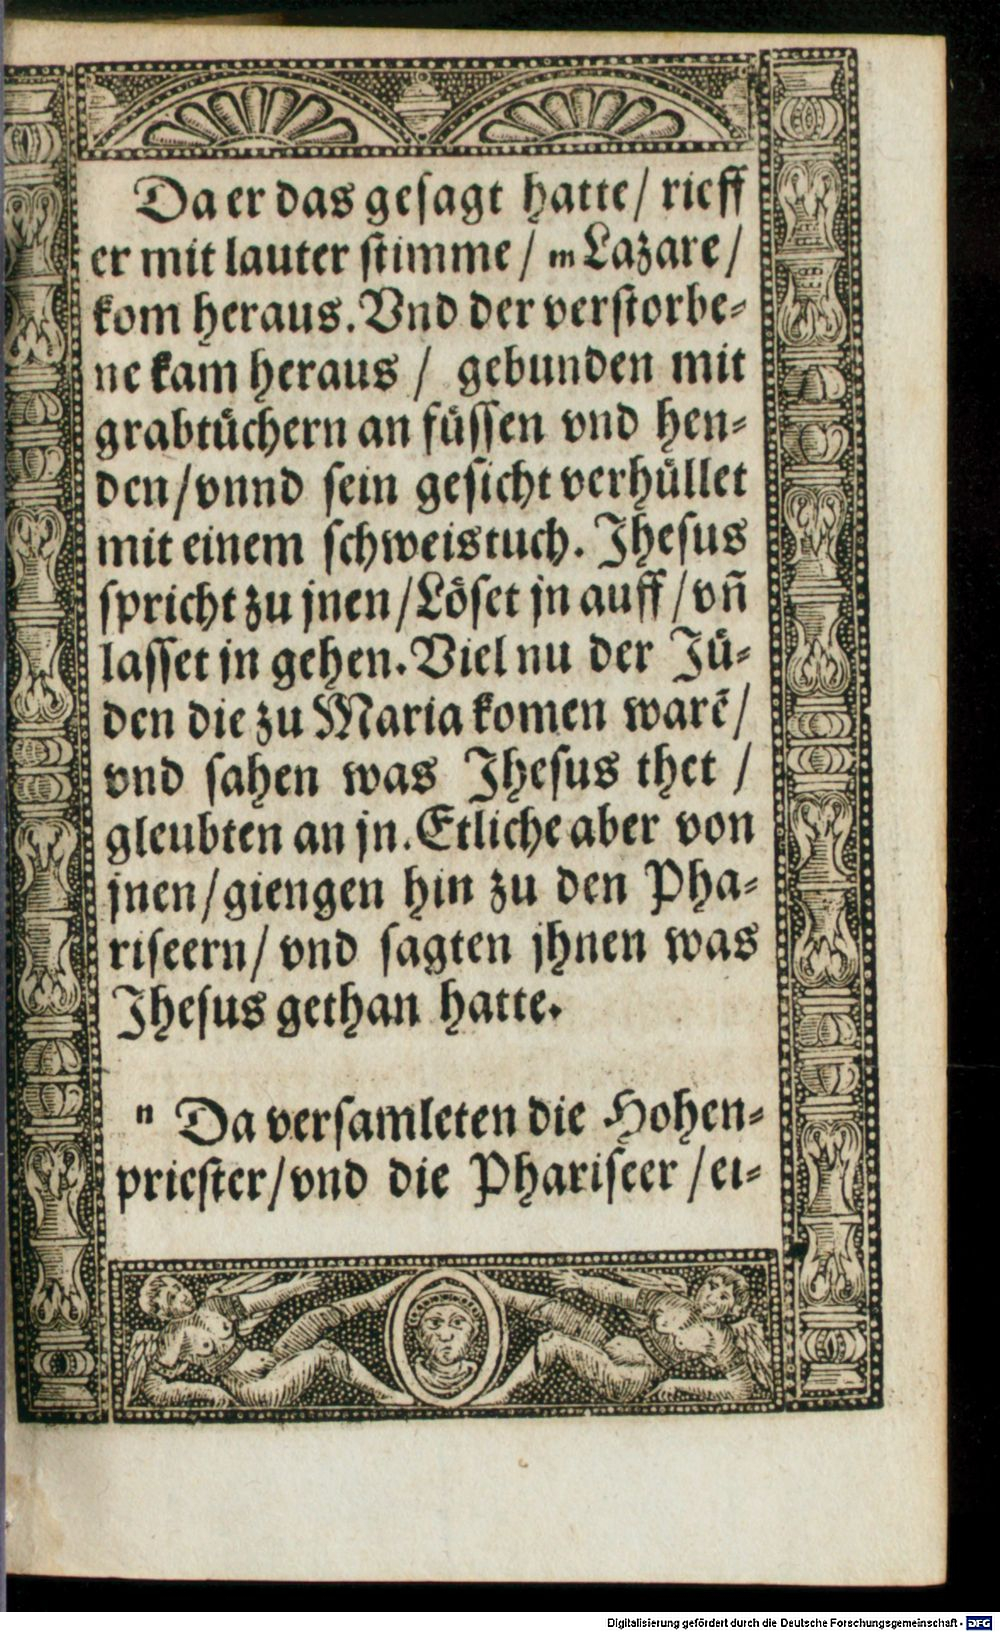 Da er das gesagt hatte/ rieff
er mit lauter stimme/ m Lazare/
kom heraus. Vnd der verstorbe-
ne kam heraus/ gebunden mit
grabtuͤchern an fuͤssen vnd hen-
den/vnnd sein gesicht verhuͤllet
mit einem schweistuch. Jhesus
spricht zu jnen/Loͤset jn auff/vñ
lasset jn gehen. Viel nu der Juͤ-
den die zu Maria komen warẽ/
vnd sahen was Jhesus thet/
gleubten an jn. Etliche aber von
jnen/giengen hin zu den Pha-
riseern/ vnd sagten jhnen was
Jhesus gethan hatte.
n Da versamleten die Hohen-
priester/vnd die Phariseer/ei-
Digitalisierung gefördert durch die Deutsche Forschungsgemeinschaft - DFG